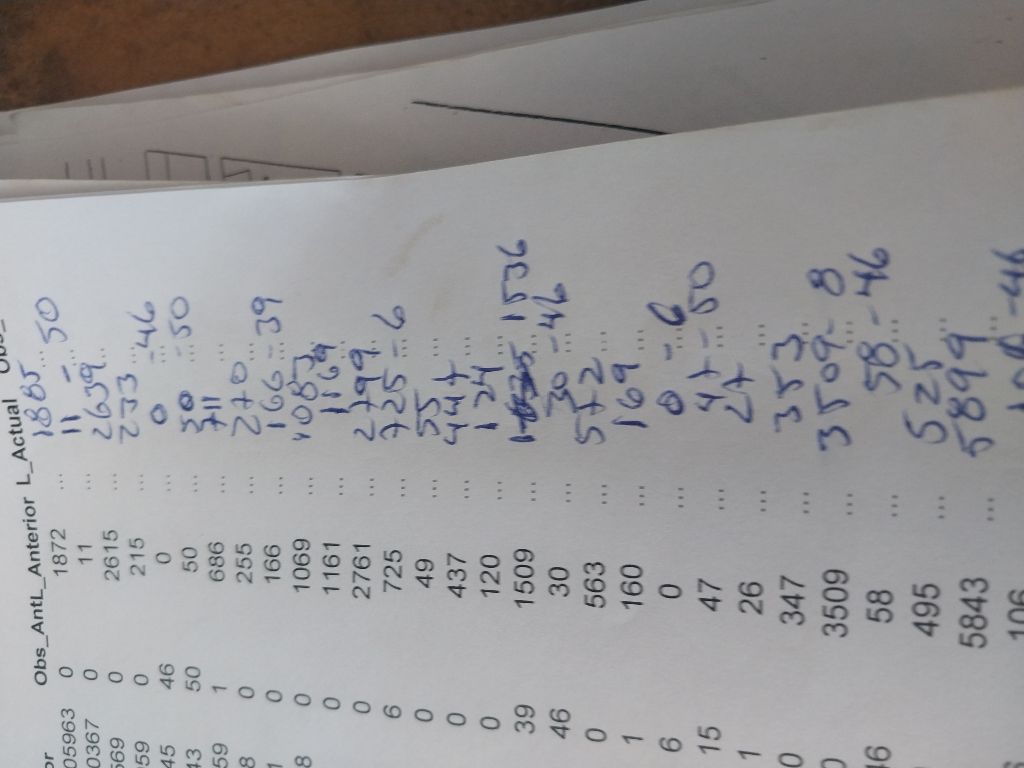 or Obs_AntL_Anterior L_Actual Obs_
05963 0 1872 ... 1885 ...
0367 0 11 ... 11 - 50
669 0 2615 ... 2639 ...
959 0 215 ... 233 ...
45 46 0 ... 0 ... -46
43 50 50 ... 50 ... -50
959 1 686 ... 711 ...
8 0 255 ... 270 ...
1 0 166 ... 166 - 39
8 0 1069 ... 1083 ...
0 1161 ... 1169 ...
0 2761 ... 2799 ...
6 725 ... 725 - 6
0 49 ... 55 ...
0 437 ... 447 ...
0 120 ... 124 ...
39 1509 ... 1536
46 30 ... 30 - 46
0 563 ... 572 ...
1 160 ... 169 ...
6 0 ... 0 - 6
15 47 ... 47 - 50
1 26 ... 27 ...
0 347 ... 353 ...
0 3509 ... 3509 - 8
46 58 ... 58 - 46
495 ... 525 ...
5843 ... 5899 ...
106 -46